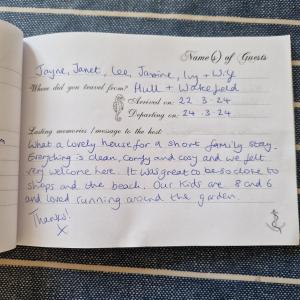 Name(s) of Guests
Jayne, Janet, Lee, Janine, Ivy + Wife
Where did you travel from? Hull + Wakefield
Arrived on: 22.3.24
Departing on: 24.3.24
Lasting memories / message to the host:
What a lovely house for a short family stay.
Everything is clean, comfy and cosy and we felt
very welcome here. It was great to be so close to
shops and the beach. Our kids are 8 and 6
and loved running around the garden.
Thanks!
X